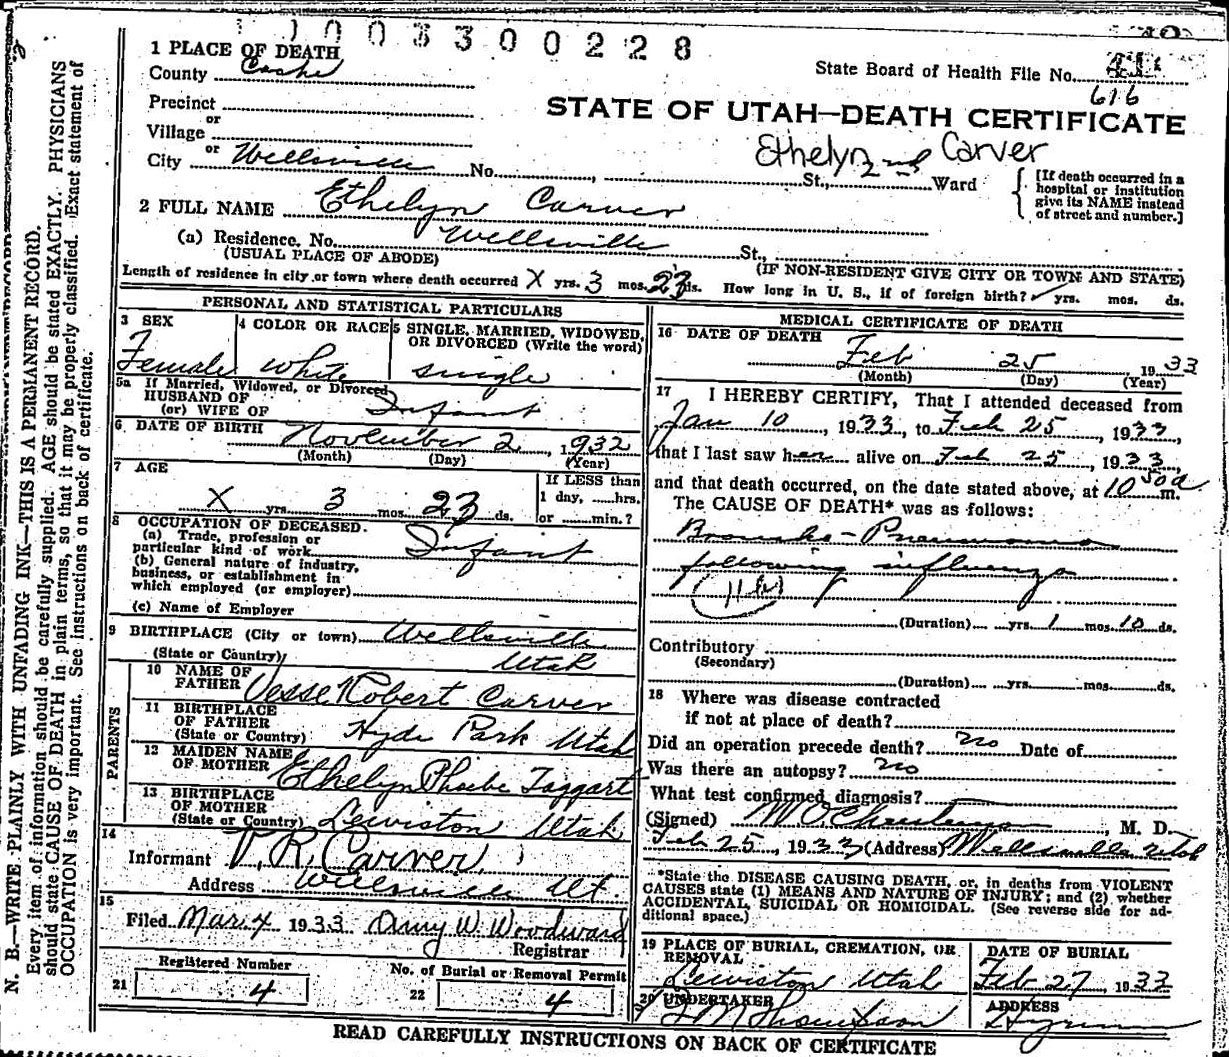 1003300228
1 PLACE OF DEATH
County Cache
State Board of Health File No. 41
616
Precinct
or
Village
or
City Wellsville No. St., Ward
STATE OF UTAH—DEATH CERTIFICATE
Ethelyn 2nd Carver
[If death occurred in a
hospital or institution
give its NAME instead
of street and number.]
2 FULL NAME Ethelyn Carver
(a) Residence. No. Wellsville St.,
(USUAL PLACE OF ABODE) (IF NON-RESIDENT GIVE CITY OR TOWN AND STATE)
Length of residence in city or town where death occurred X yrs. 3 mos. 23 ds. How long in U. S., if of foreign birth? yrs. mos. ds.
PERSONAL AND STATISTICAL PARTICULARS
3 SEX 4 COLOR OR RACE 5 SINGLE, MARRIED, WIDOWED,
OR DIVORCED (Write the word)
Female white single
5a If Married, Widowed, or Divorced
HUSBAND OF
(or) WIFE OF Infant
6 DATE OF BIRTH November 2, 1932
(Month) (Day) (Year)
7 AGE
If LESS than
1 day, ......hrs.
or ......min.?
X yrs. 3 mos. 23 ds.
8 OCCUPATION OF DECEASED.
(a) Trade, profession or
particular kind of work Infant
(b) General nature of industry,
business, or establishment in
which employed (or employer)
(c) Name of Employer
9 BIRTHPLACE (City or town) Wellsville
(State or Country) Utah
PARENTS
10 NAME OF
FATHER Jesse Robert Carver
11 BIRTHPLACE
OF FATHER
(State or Country) Hyde Park Utah
12 MAIDEN NAME
OF MOTHER Ethelyn Phoebe Taggart
13 BIRTHPLACE
OF MOTHER
(State or Country) Lewiston Utah
14
Informant V. R. Carver
Address Wellsville Ut.
15
Filed Mar. 4 1933 Amy W. Woodward
Registrar
Registered Number
21 4
No. of Burial or Removal Permit
22 4
MEDICAL CERTIFICATE OF DEATH
16 DATE OF DEATH
Feb 25 1933
(Month) (Day) (Year)
17 I HEREBY CERTIFY, That I attended deceased from
Jan 10, 1933, to Feb 25, 1933,
that I last saw her alive on Feb 25, 1933,
and that death occurred, on the date stated above, at 10 50a m.
The CAUSE OF DEATH* was as follows:
Broncho-Pneumonia
following influenza
(Duration) yrs. 1 mos. 10 ds.
Contributory
(Secondary)
(Duration) yrs. mos. ds.
18 Where was disease contracted
if not at place of death?
Did an operation precede death? no Date of
Was there an autopsy? no
What test confirmed diagnosis?
(Signed) M O Christensen, M. D.
Feb 25, 1933 (Address) Wellsville Utah
*State the DISEASE CAUSING DEATH, or, in deaths from VIOLENT
CAUSES state (1) MEANS AND NATURE OF INJURY; and (2) whether
ACCIDENTAL, SUICIDAL OR HOMICIDAL. (See reverse side for ad-
ditional space.)
19 PLACE OF BURIAL, CREMATION, OR
REMOVAL
Lewiston Utah
DATE OF BURIAL
Feb 27 1933
20 UNDERTAKER
Thompson
ADDRESS
Hyrum
READ CAREFULLY INSTRUCTIONS ON BACK OF CERTIFICATE
N. B.—WRITE PLAINLY WITH UNFADING INK—THIS IS A PERMANENT RECORD.
Every item of information should be carefully supplied. AGE should be stated EXACTLY. PHYSICIANS
should state CAUSE OF DEATH in plain terms, so that it may be properly classified. Exact statement of
OCCUPATION is very important. See instructions on back of certificate.